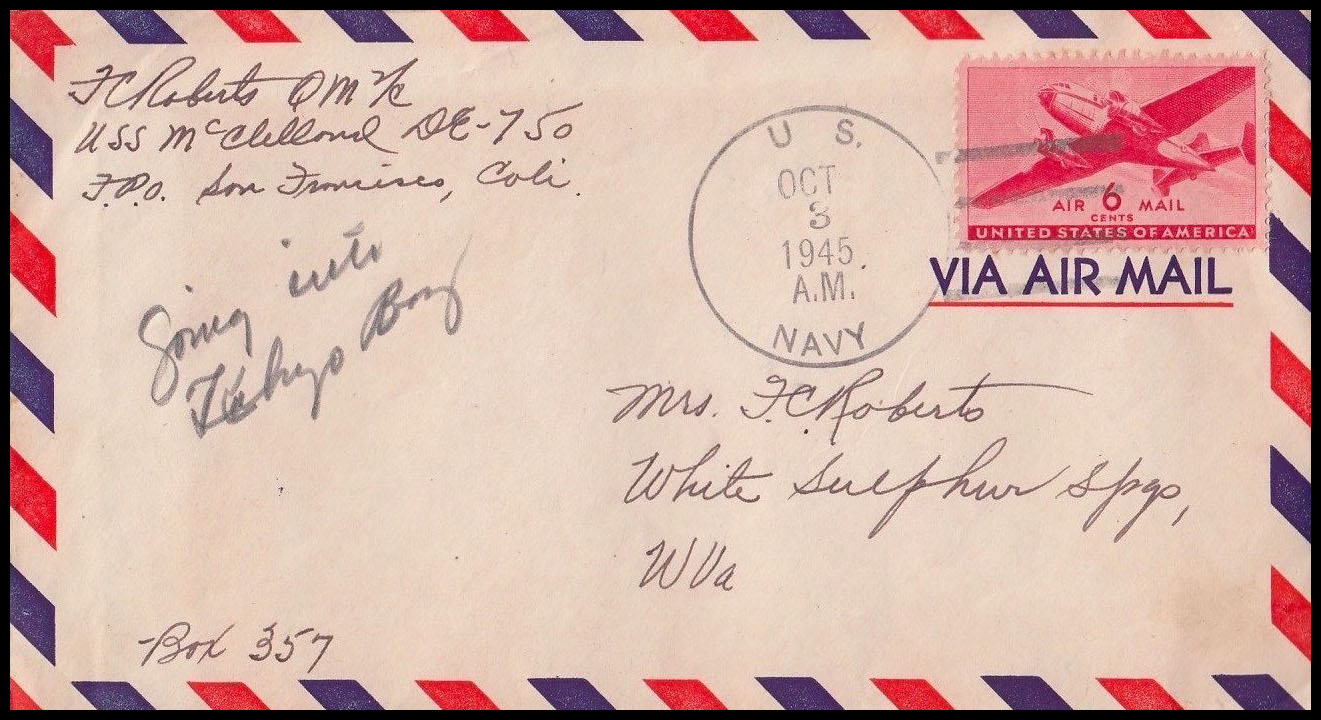 F C Roberts QM 2/c
USS McClelland DE-750
F.P.O. San Francisco, Cali.
U. S.
OCT
3
1945
A.M.
NAVY
AIR 6 MAIL
CENTS
UNITED STATES OF AMERICA
VIA AIR MAIL
Going into
Tokyo Bay
Mrs. F. C. Roberts
White Sulphur Spgs,
W Va
Box 357